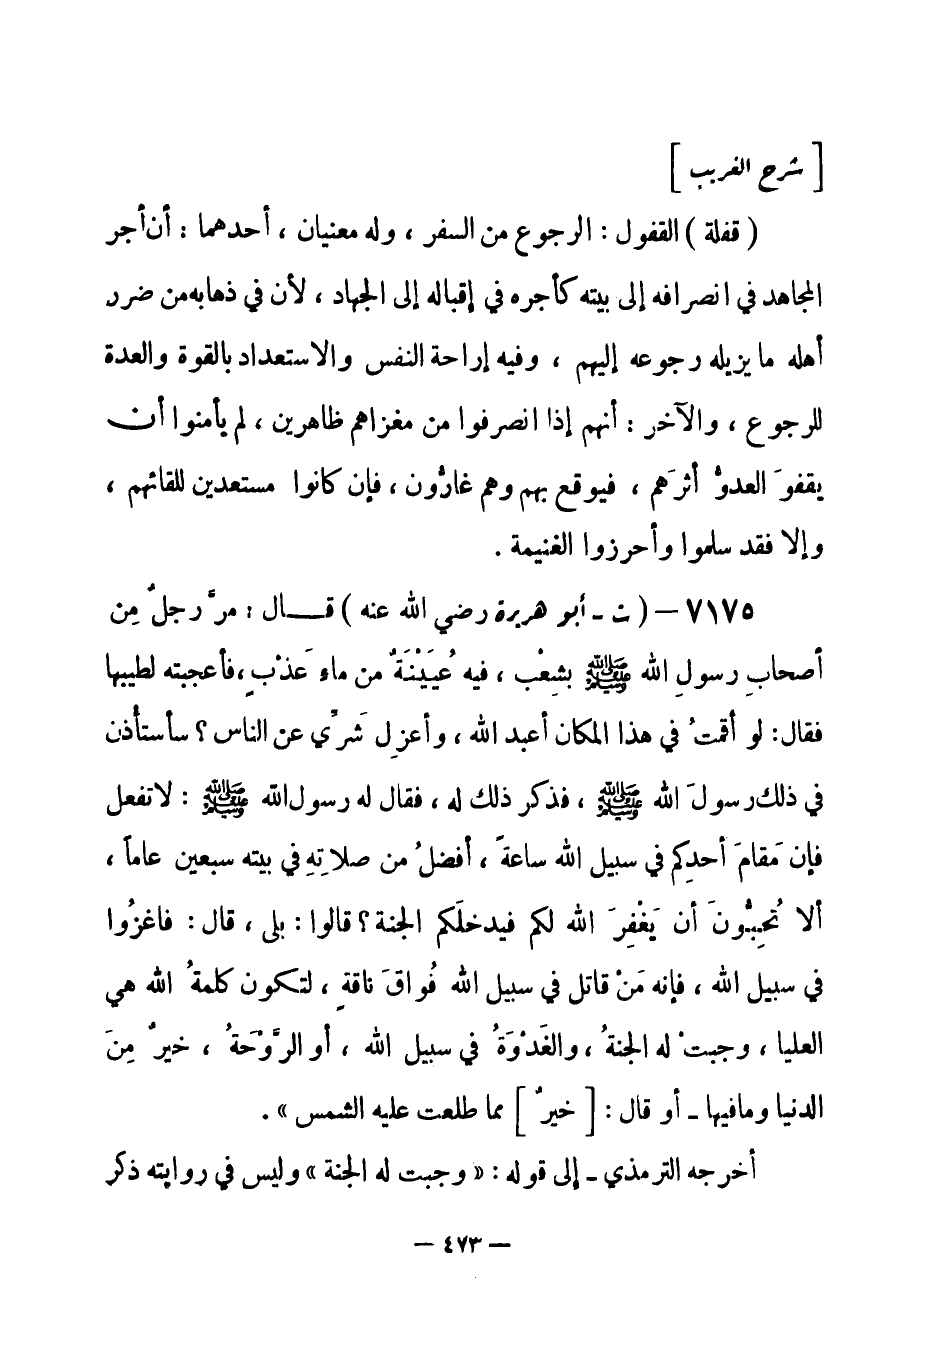 [ شرح الغريب ]
( قفلة ) القفول : الرجوع من السفر ، وله معنيان ، أحدهما : أن أجر
المجاهد في انصرافه إلى بيته كأجره في إقباله إلى الجهاد ، لأن في ذهابه من ضرر
أهله ما يزيله رجوعه إليهم ، وفيه إراحة النفس والاستعداد بالقوة والعدة
للرجوع ، والآخر : أنهم إذا انصرفوا من مغزاهم ظاهرين ، لم يأمنوا أن
يقفوَ العدوُّ أثرَهم ، فيوقع بهم وهم غارُّون ، فإن كانوا مستعدين للقائهم ،
وإلا فقد سلموا وأحرزوا الغنيمة .
٧١٧٥ – ( ت ـ أبو هريرة رضي الله عنه ) قــــال : مرَّ رجلٌ مِن
أصحابِ رسولِ الله ﷺ بشِعْب ، فيه عُيَيْنَةٌ من ماء عَذْبٍ ، فأعجبته لطيبها
فقال: لو أقمتُ في هذا المكان أعبد الله ، وأعزِل شَرِّي عن الناس ؟ سأستأذن
في ذلك رسولَ الله ﷺ ، فذكر ذلك له ، فقال له رسول الله ﷺ : لا تفعل
فإن مَقامَ أحدِكم في سبيل الله ساعةً ، أفضلُ من صلاتِهِ في بيته سبعين عاماً ،
ألا تُحِبُّونَ أن يَغْفِرَ الله لكم فيدخلَكم الجنة ؟ قالوا : بلى ، قال : فاغزُوا
في سبيل الله ، فإنه مَنْ قاتل في سبيل الله فُواقَ ناقةٍ ، لتكون كلمةُ الله هي
العليا ، وجبتْ له الجنةُ ، والغَدْوَةُ في سبيل الله ، أو الرَّوْحَةُ ، خيرٌ مِنَ
الدنيا ومافيها ـ أو قال : [ خيرٌ ] مما طلعت عليه الشمس » .
أخرجه الترمذي ـ إلى قوله : « وجبت له الجنة » وليس في روايته ذكر
– ٤٧٣ –